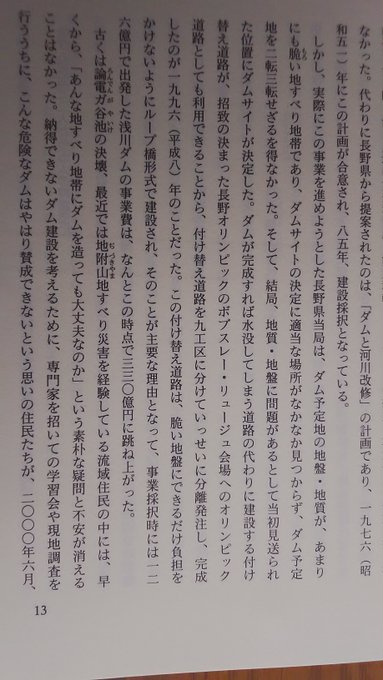 なかった。代わりに長野県から提案されたのは、「ダムと河川改修」の計画であり、一九七六（昭
和五一）年にこの計画が合意され、八五年、建設採択となっている。
しかし、実際にこの事業を進めようとした長野県当局は、ダム予定地の地盤・地質が、あまり
にも脆い地すべり地帯であり、ダムサイトの決定に適当な場所がなかなか見つからず、ダム予定
地を二転三転せざるを得なかった。そして、結局、地質・地盤に問題があるとして当初見送られ
た位置にダムサイトが決定した。ダムが完成すれば水没してしまう道路の代わりに建設する付け
替え道路が、招致の決まった長野オリンピックのボブスレー・リュージュ会場へのオリンピック
道路としても利用できることから、付け替え道路を九工区に分けていっせいに分離発注し、完成
したのが一九九六（平成八）年のことだった。この付け替え道路は、脆い地盤にできるだけ負担を
かけないようにループ橋形式で建設され、そのことが主要な理由となって、事業採択時には一二
六億円で出発した浅川ダムの事業費は、なんとこの時点で三三〇億円に跳ね上がった。
古くは論電ガ谷池の決壊、最近では地附山地すべり災害を経験している流域住民の中には、早
くから、「あんな地すべり地帯にダムを造っても大丈夫なのか」という素朴な疑問と不安が消える
ことはなかった。納得できないダム建設を考えるために、専門家を招いての学習会や現地調査を
行ううちに、こんな危険なダムはやはり賛成できないという思いの住民たちが、二〇〇〇年六月、
13